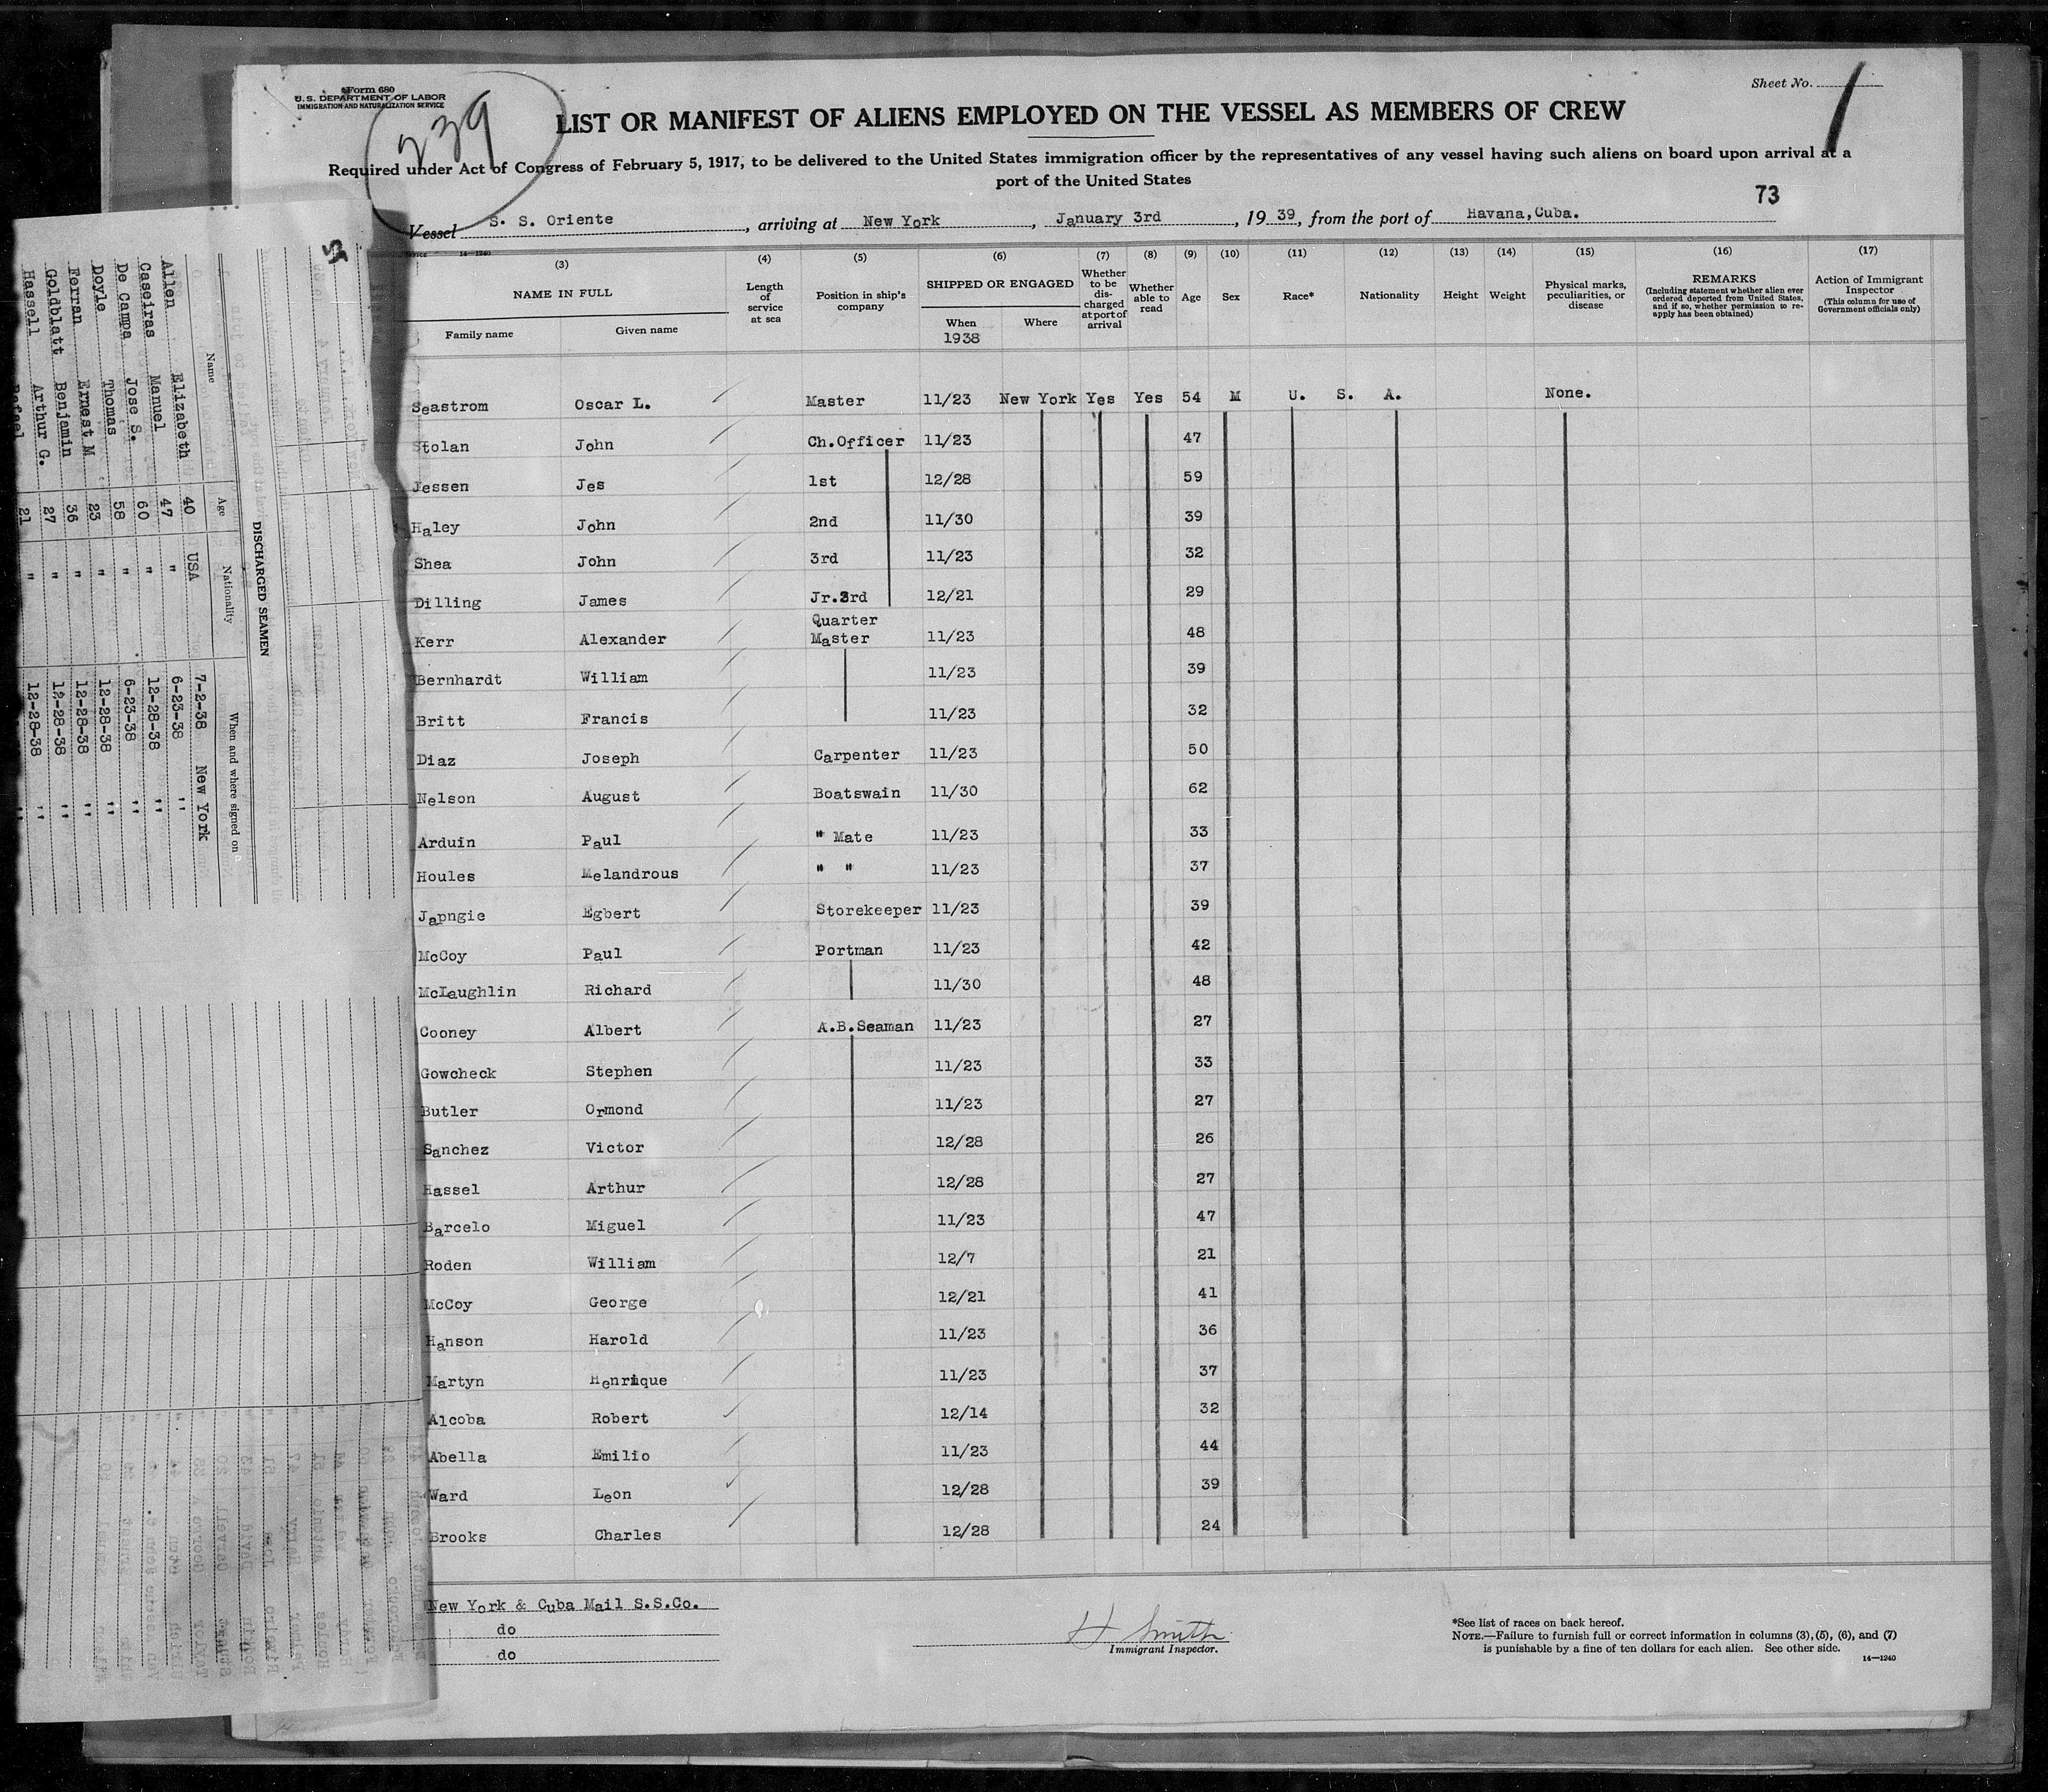 Form 680
U.S. DEPARTMENT OF LABOR
IMMIGRATION AND NATURALIZATION SERVICE
239
Sheet No. 1
LIST OR MANIFEST OF ALIENS EMPLOYED ON THE VESSEL AS MEMBERS OF CREW
Required under Act of Congress of February 5, 1917, to be delivered to the United States immigration officer by the representatives of any vessel having such aliens on board upon arrival at a
port of the United States
73
Vessel S. S. Oriente, arriving at New York, January 3rd, 1939, from the port of Havana, Cuba.
14—1240
(3) (4) (5) (6) (7) (8) (9) (10) (11) (12) (13) (14) (15) (16) (17)
NAME IN FULL
Family name
Given name
Length of service at sea
Position in ship's company
SHIPPED OR ENGAGED
When
1938
Where
Whether to be discharged at port of arrival
Whether able to read
Age
Sex
Race*
Nationality
Height
Weight
Physical marks, peculiarities, or disease
REMARKS
(Including statement whether alien ever ordered deported from United States, and if so, whether permission to reapply has been obtained)
Action of Immigrant Inspector
(This column for use of Government officials only)
Seastrom Oscar L. Master 11/23 New York Yes Yes 54 M U. S. A. None.
Stolan John Ch.Officer 11/23 47
Jessen Jes 1st 12/28 59
Haley John 2nd 11/30 39
Shea John 3rd 11/23 32
Dilling James Jr.3rd 12/21 29
Kerr Alexander Quarter Master 11/23 48
Bernhardt William 11/23 39
Britt Francis 11/23 32
Diaz Joseph Carpenter 11/23 50
Nelson August Boatswain 11/30 62
Arduin Paul " Mate 11/23 33
Houles Melandrous " " 11/23 37
Japngie Egbert Storekeeper 11/23 39
McCoy Paul Portman 11/23 42
McLaughlin Richard 11/30 48
Cooney Albert A.B.Seaman 11/23 27
Gowcheck Stephen 11/23 33
Butler Ormond 11/23 27
Sanchez Victor 12/28 26
Hassel Arthur 12/28 27
Barcelo Miguel 11/23 47
Roden William 12/7 21
McCoy George 12/21 41
Hanson Harold 11/23 36
Martyn Henrique 11/23 37
Alcoba Robert 12/14 32
Abella Emilio 11/23 44
Ward Leon 12/28 39
Brooks Charles 12/28 24
New York & Cuba Mail S.S.Co.
do
do
H Smith
Immigrant Inspector.
*See list of races on back hereof.
NOTE.—Failure to furnish full or correct information in columns (3), (5), (6), and (7)
is punishable by a fine of ten dollars for each alien. See other side.
14—1240
DISCHARGED SEAMEN
Name Age Nationality When and where signed on
Allen Elizabeth 40 USA 7-2-38 New York
Caseiras Manuel 47 " 6-23-38 "
De Campa Jose S. 60 " 12-28-38 "
Doyle Thomas 58 " 6-23-38 "
Ferran Ernest M 23 " 12-28-38 "
Goldblatt Benjamin 36 " 12-28-38 "
Hassell Arthur G. 27 " 12-28-38 "
Rafael 21 " 12-28-38 "